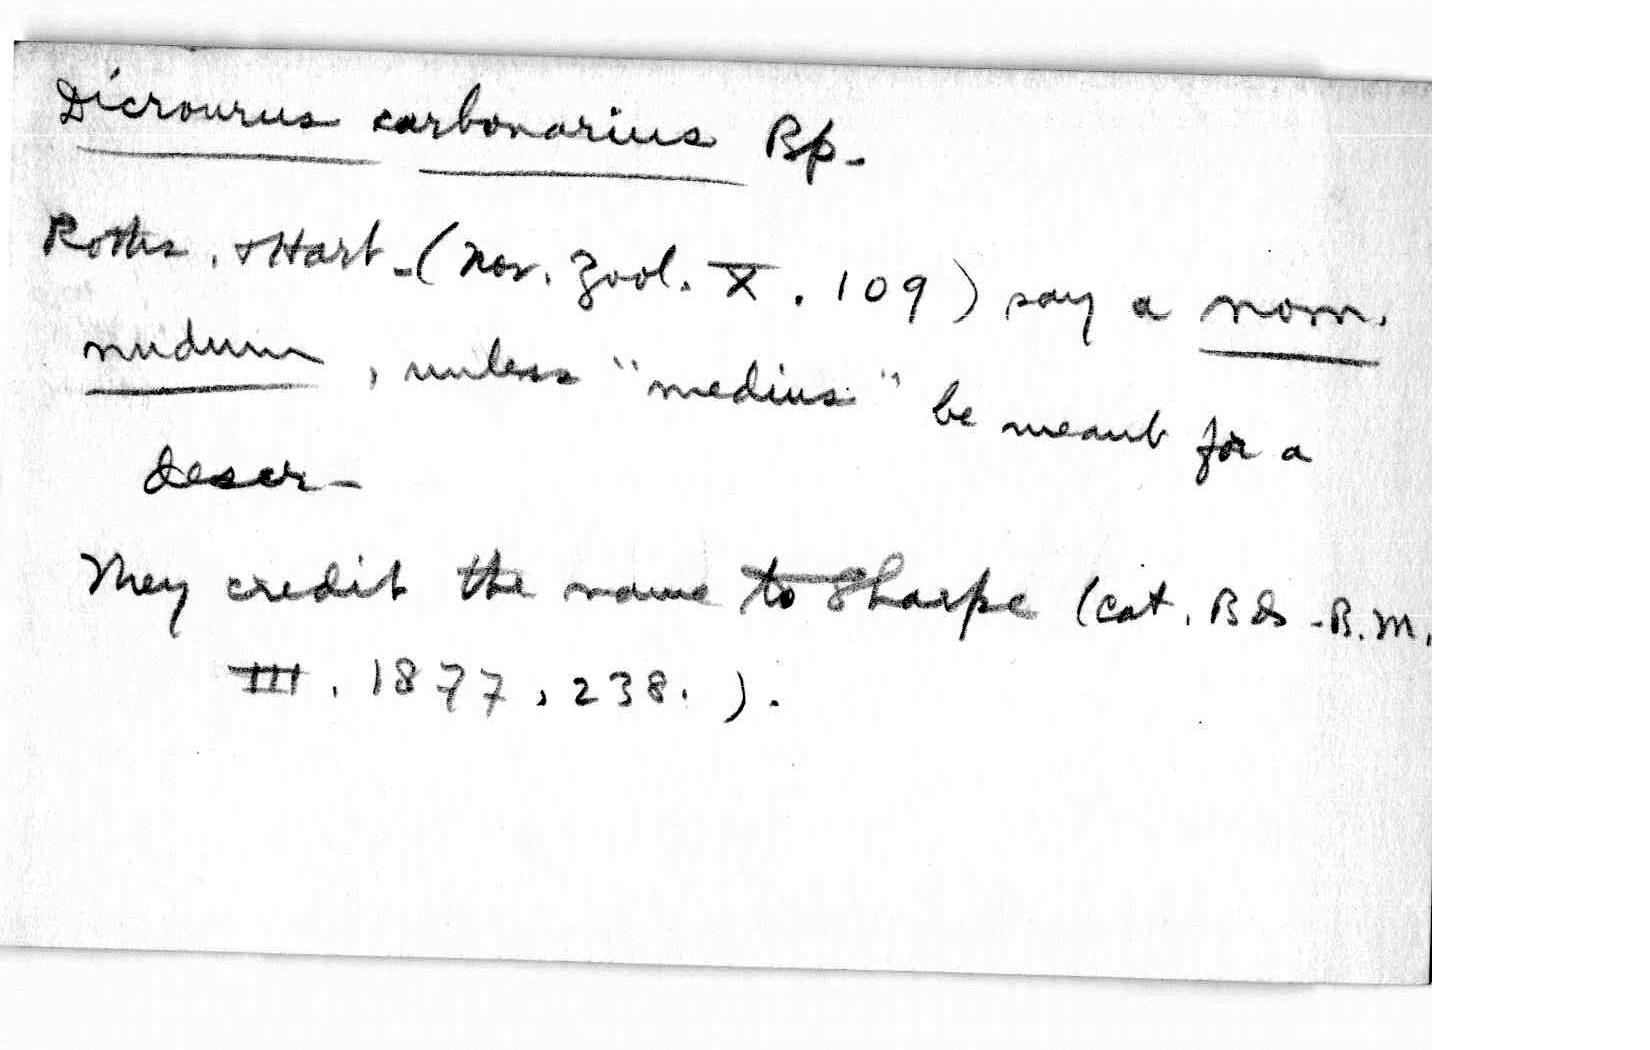 Dicrourus carbonarius Bp.
Roths. & Hart. (Nov. Zool. X. 109) say a nom.
nudum, unless "medius" be meant for a
descr.
They credit the name to Sharpe (Cat. Bds. B.M.
III. 1877, 238.).